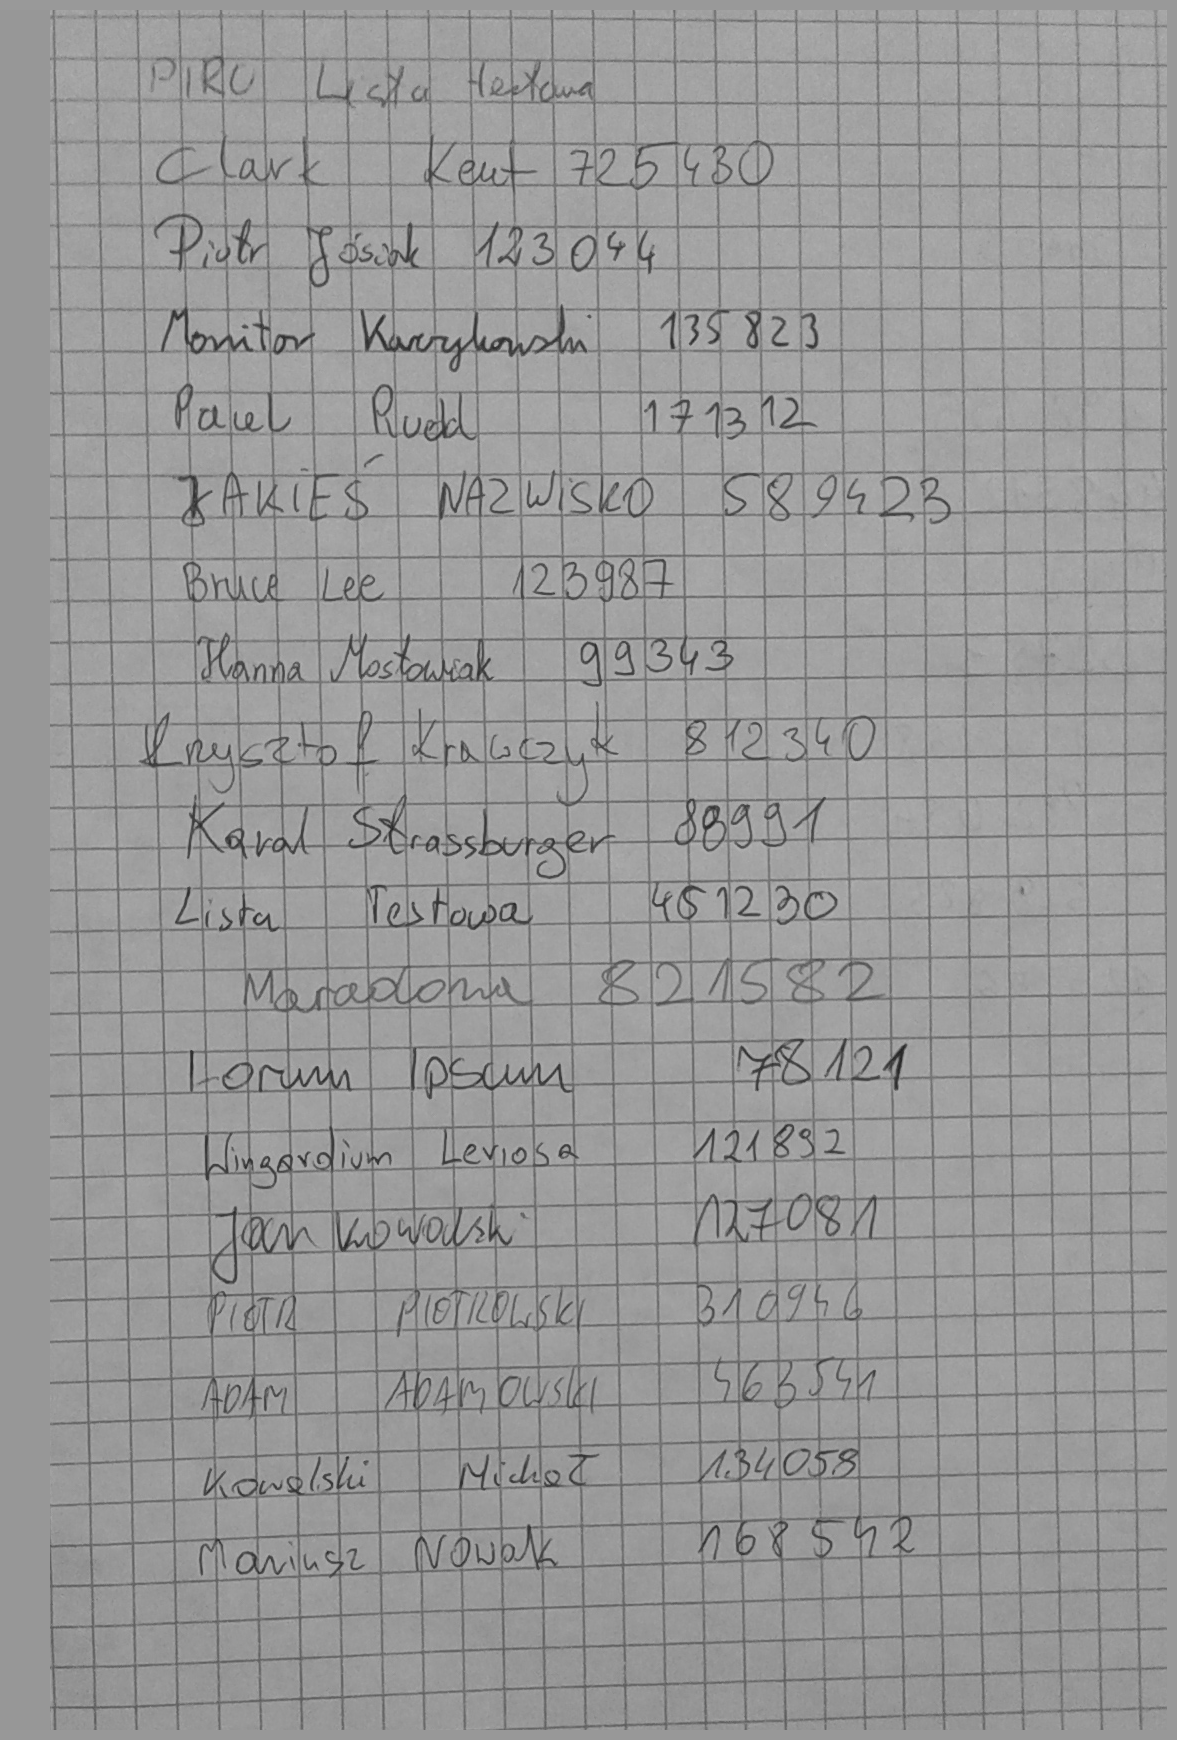 PIRO Lista testowa
Clark Kent 725430
Piotr Jósiak 123044
Monitor Karzykowski 135823
Paweł Rudd 171312
JAKIEŚ NAZWISKO 589423
Bruce Lee 123987
Hanna Mostowiak 99343
Krzysztof Krawczyk 812340
Karol Strassburger 88991
Lista Testowa 451230
Maradona 821582
Lorum Ipsum 78121
Wingardium Leviosa 121892
Jan Kowalski 127081
PIOTR PIOTROWSKI 310946
ADAM ADAMOWSKI 463541
Kowalski Michał 134058
Mariusz Nowak 168542